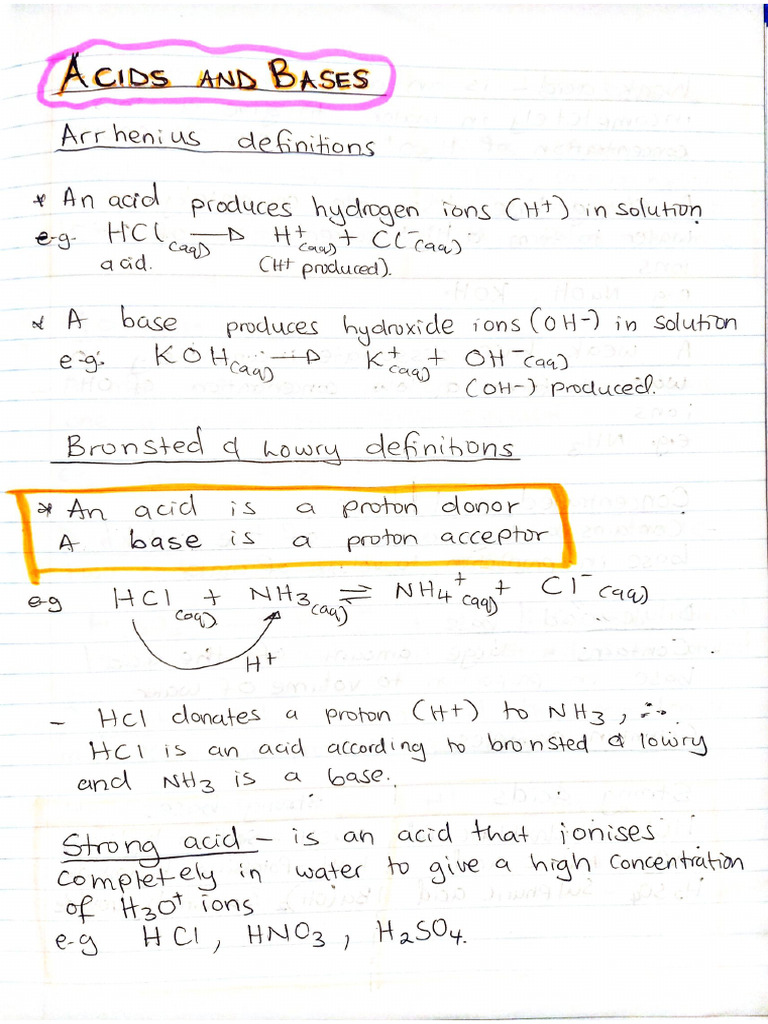 ACIDS AND BASES
Arrhenius definitions
* An acid produces hydrogen ions (H+) in solution
e-g. HCl(aq) → H+(aq) + Cl-(aq)
acid. (H+ produced).
* A base produces hydroxide ions (OH-) in solution
e-g. KOH(aq) → K+(aq) + OH-(aq)
(OH-) produced.
Bronsted & Lowry definitions
* An acid is a proton donor
A base is a proton acceptor
e-g HCl(aq) + NH3(aq) ⇌ NH4+(aq) + Cl-(aq)
H+
- HCl donates a proton (H+) to NH3, ∴
HCl is an acid according to bronsted & lowry
and NH3 is a base.
Strong acid - is an acid that ionises
completely in water to give a high concentration
of H3O+ ions
e-g HCl, HNO3, H2SO4.